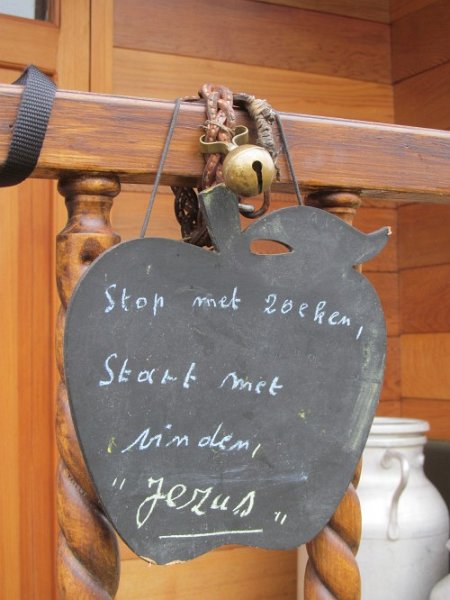 Stop met zoeken,
Start met
vinden,
"Jezus"